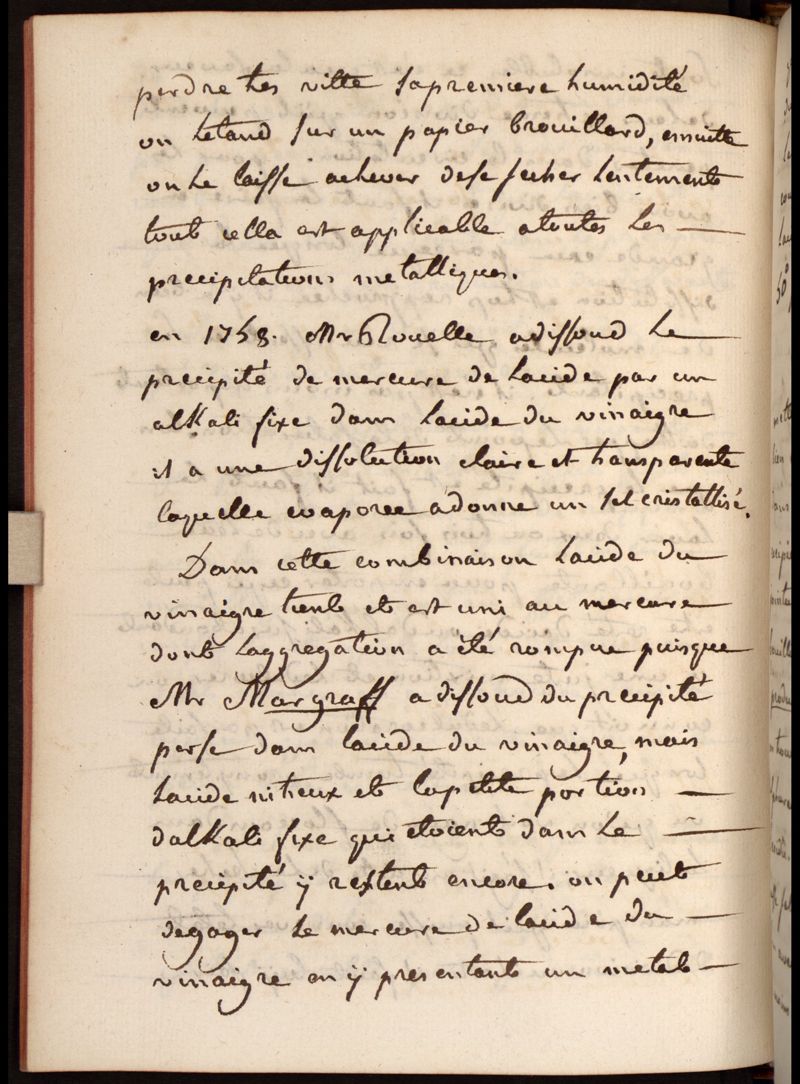 perdre tres vitte sa premiere humidité
on letand sur un papier brouillard, ensuitte
on le laisse achever dese secher lentement
tout cella est applicable atoutes les —
precipitations metalliques.
en 1758. Mr Rouelle adissoud le
precipité de mercure de lacide par un
alkali fixe dans lacide du vinaigre
il a une dissolution claire et transparente
laquelle evaporee adonne un sel cristallisé.
Dans cette combinaison lacide du
vinaigre tient et est uni au mercure
dont laggregation a été rompue puisque
Mr Margraff a dissoud du precipité
perse dans lacide du vinaigre, mais
lacide nitreux et lapetite portion —
dalkali fixe qui etoient dans le —
precipité ÿ restent encore. on peut
degager le mercure de lacide du —
vinaigre en ÿ presentant un metal —